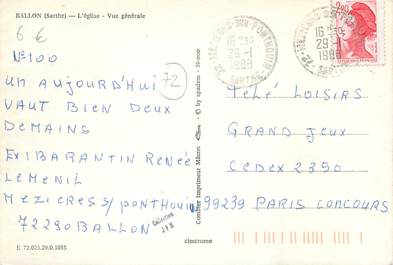 BALLON (Sarthe) — L'église - Vue générale
6 €
N°100
72
UN AUJOURD'HUI
VAUT BIEN DEUX
DEMAINS
EX: BARANTIN RENÉE
LE MENIL
MEZIERES S/PONTHOUIN
72290 BALLON
E 72.023.29.0.1055
Combier Imprimeur Mâcon
© by spadem
cimérome
16 H
29-1
1988
16 H
29-1
1988
2,20
TÉLÉ LOISIRS
GRAND JEUX
CEDEX 2350
99239 PARIS CONCOURS